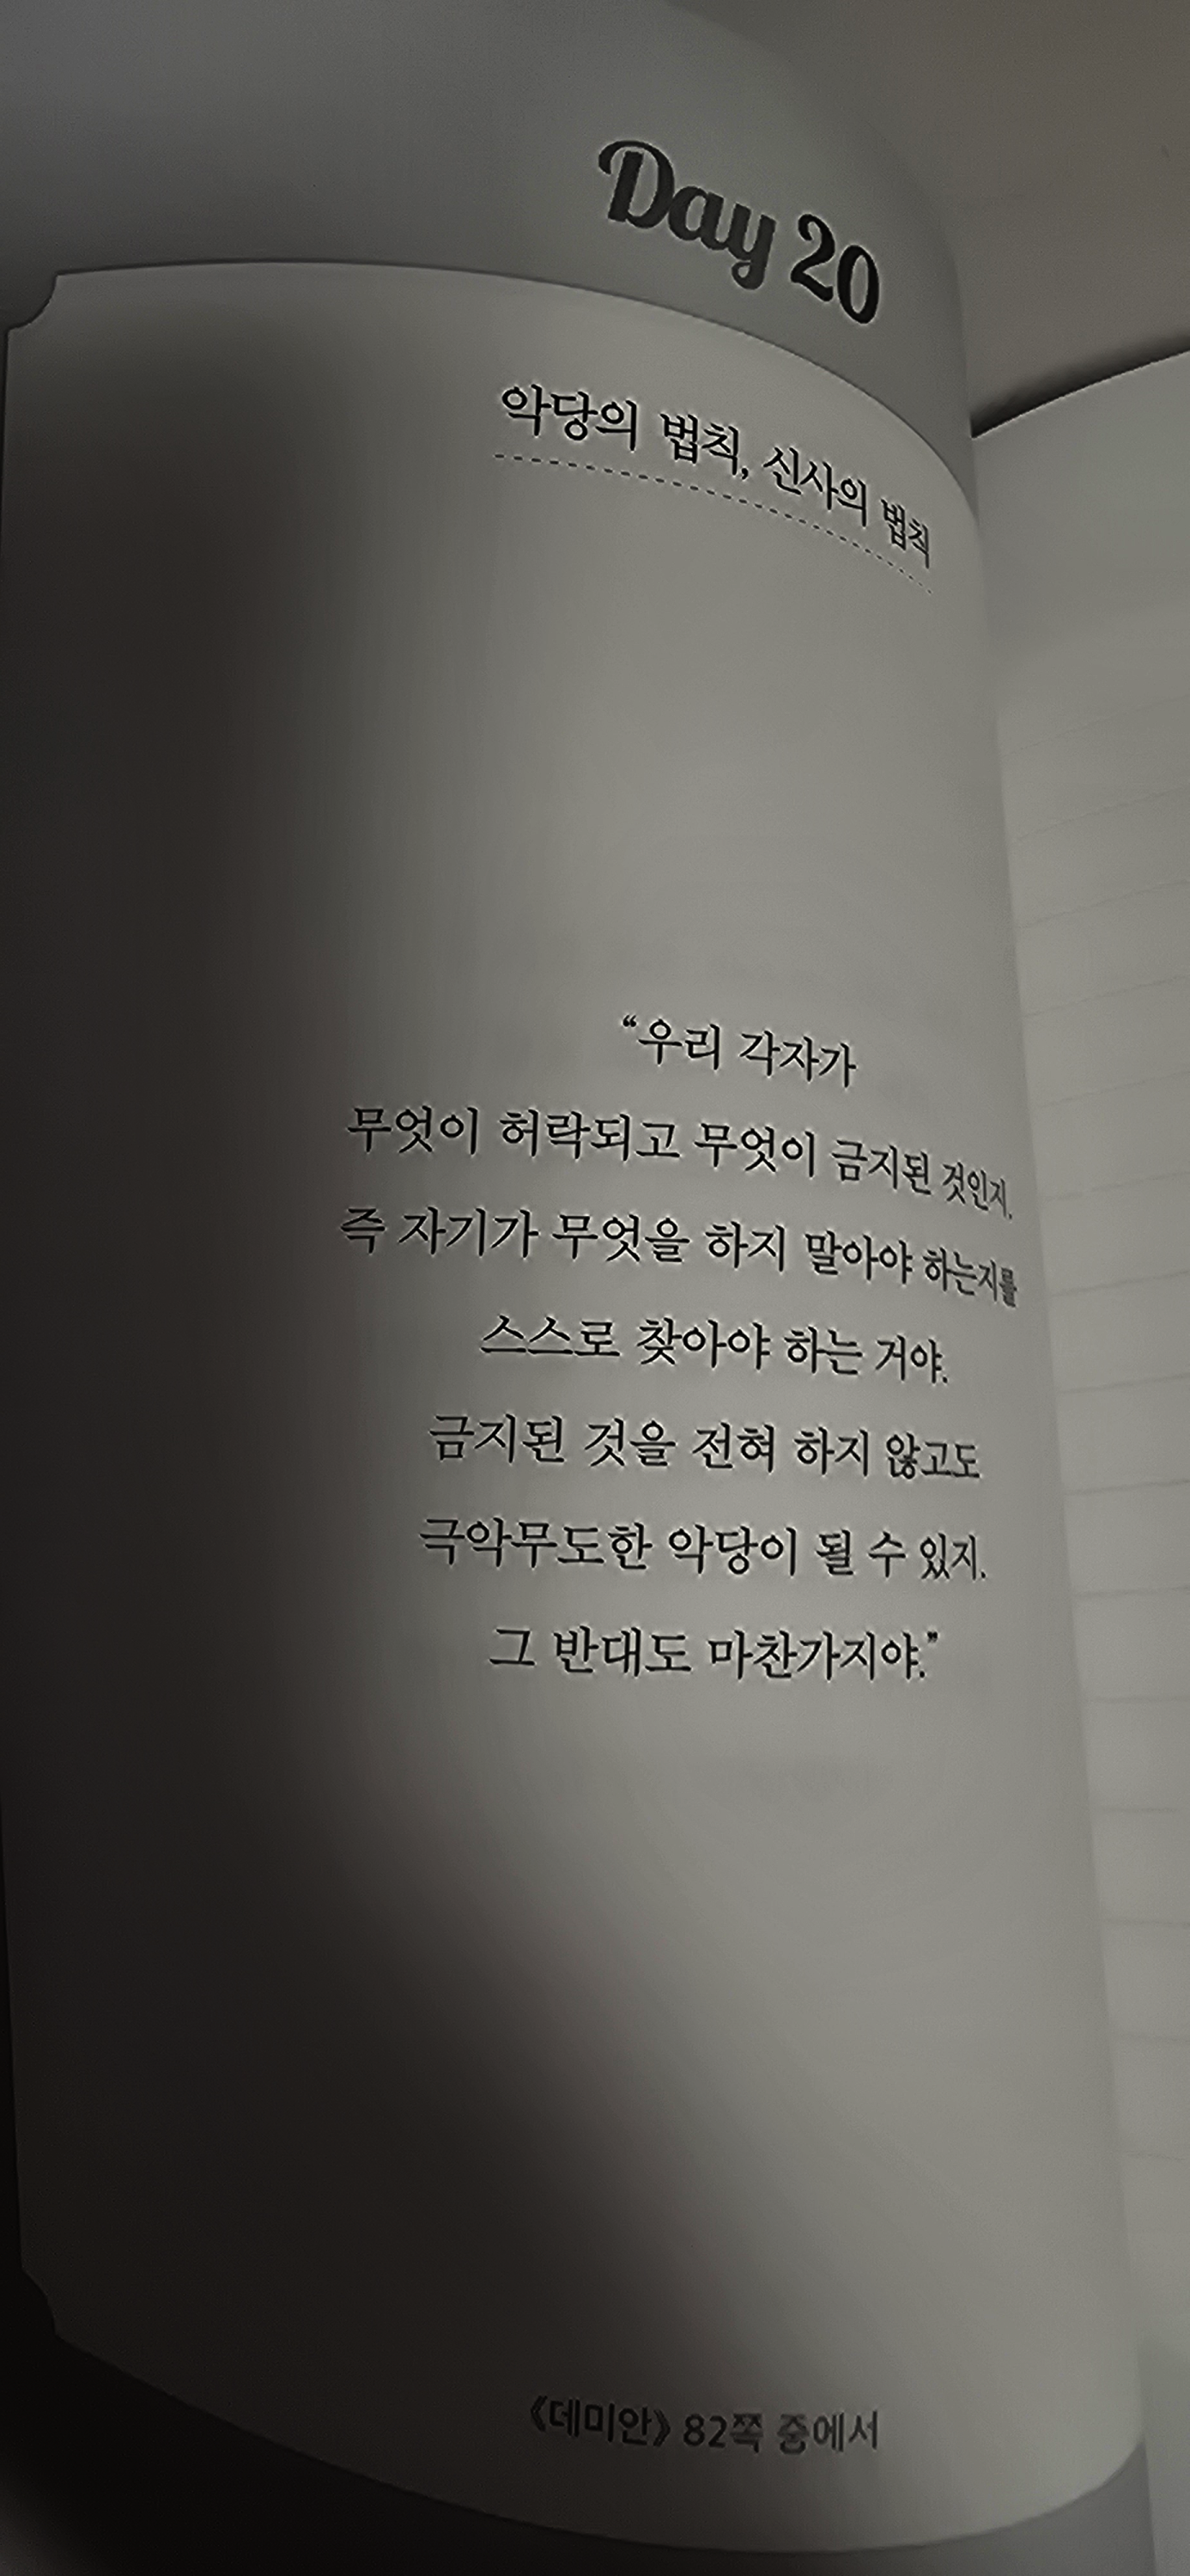 Day 20
악당의 법칙, 신사의 법칙
“우리 각자가
무엇이 허락되고 무엇이 금지된 것인지,
즉 자기가 무엇을 하지 말아야 하는지를
스스로 찾아야 하는 거야.
금지된 것을 전혀 하지 않고도
극악무도한 악당이 될 수 있지.
그 반대도 마찬가지야.”
《데미안》 82쪽 중에서